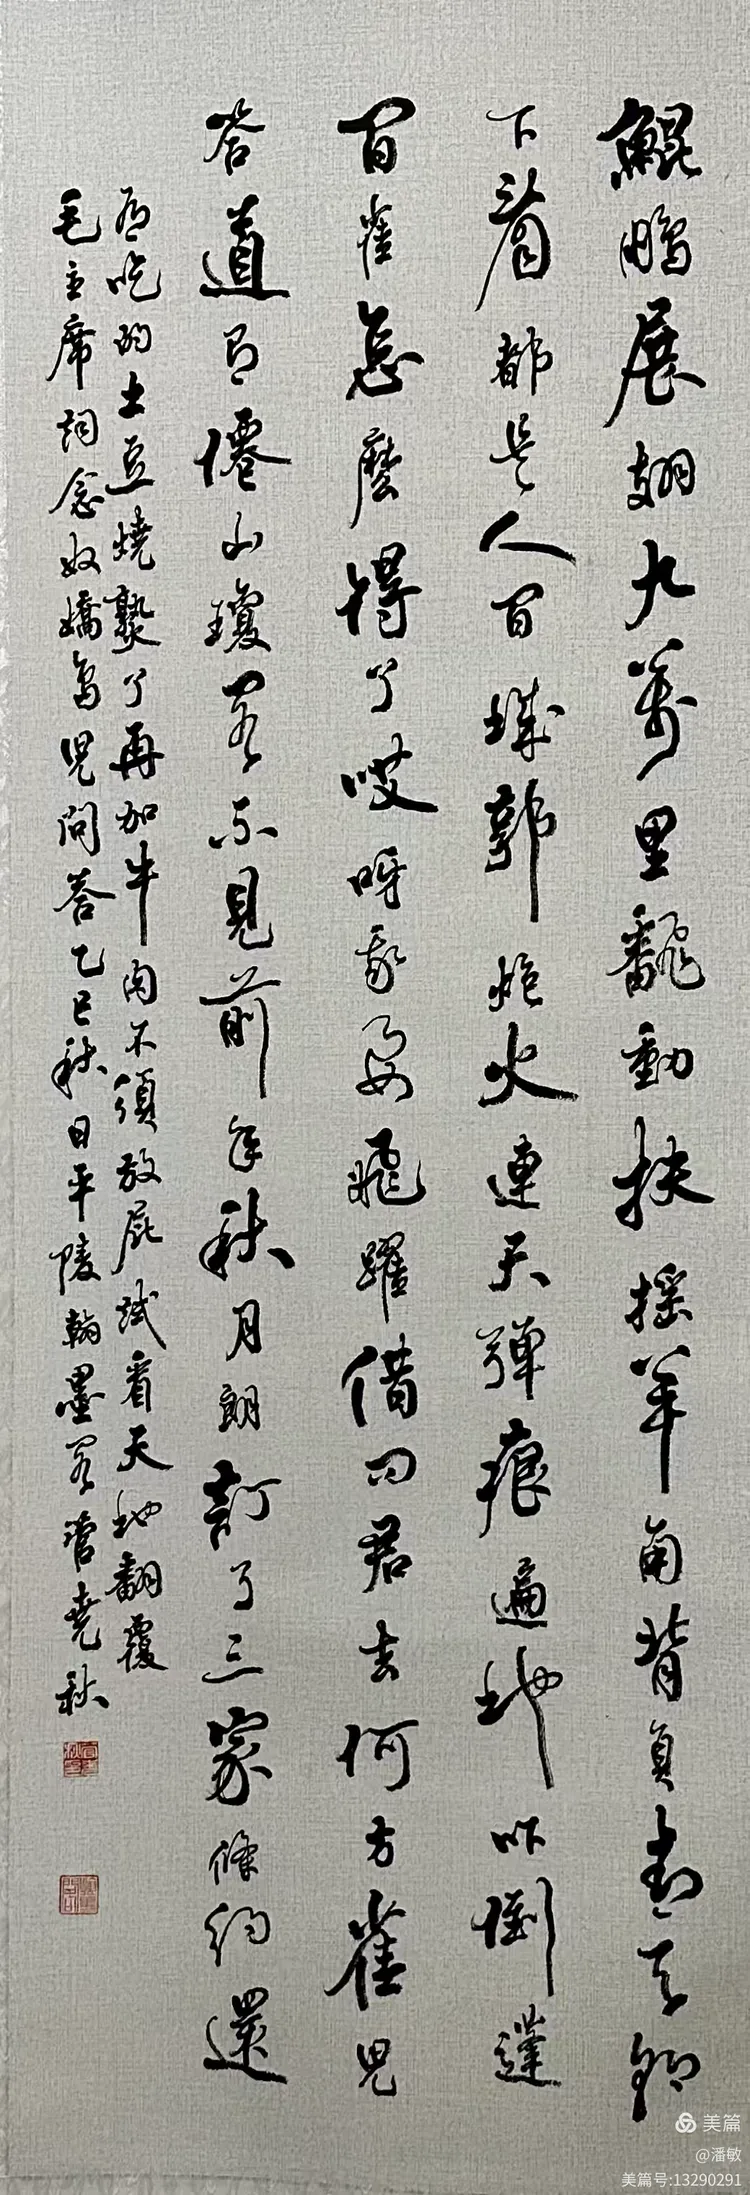 鯤鵬展翅九萬里飜動扶搖羊角背負青天朝
下看都是人間城郭炮火連天彈痕遍地吓倒蓬
間雀怎麼得了哎呀我要飛躍借問君去何方雀兒
答道有僊山瓊閣不見前年秋月朗訂了三家條約還
有吃的土豆燒熟了再加牛肉不須放屁試看天地翻覆
毛主席詞念奴嬌鳥兒問答乙巳秋日平陵翰墨閣管堯秋
美篇
@潘敏
美篇号:13290291